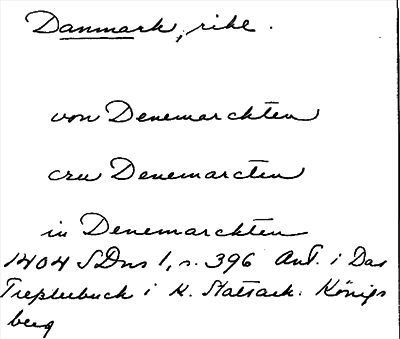 Danmark, rike.
von Denemarchten
czu Denemarcten
in Denemarckten
1404 SDns 1, s. 396 Ant. i Das
Treßlerbuch i K. Statsark. Königs
berg